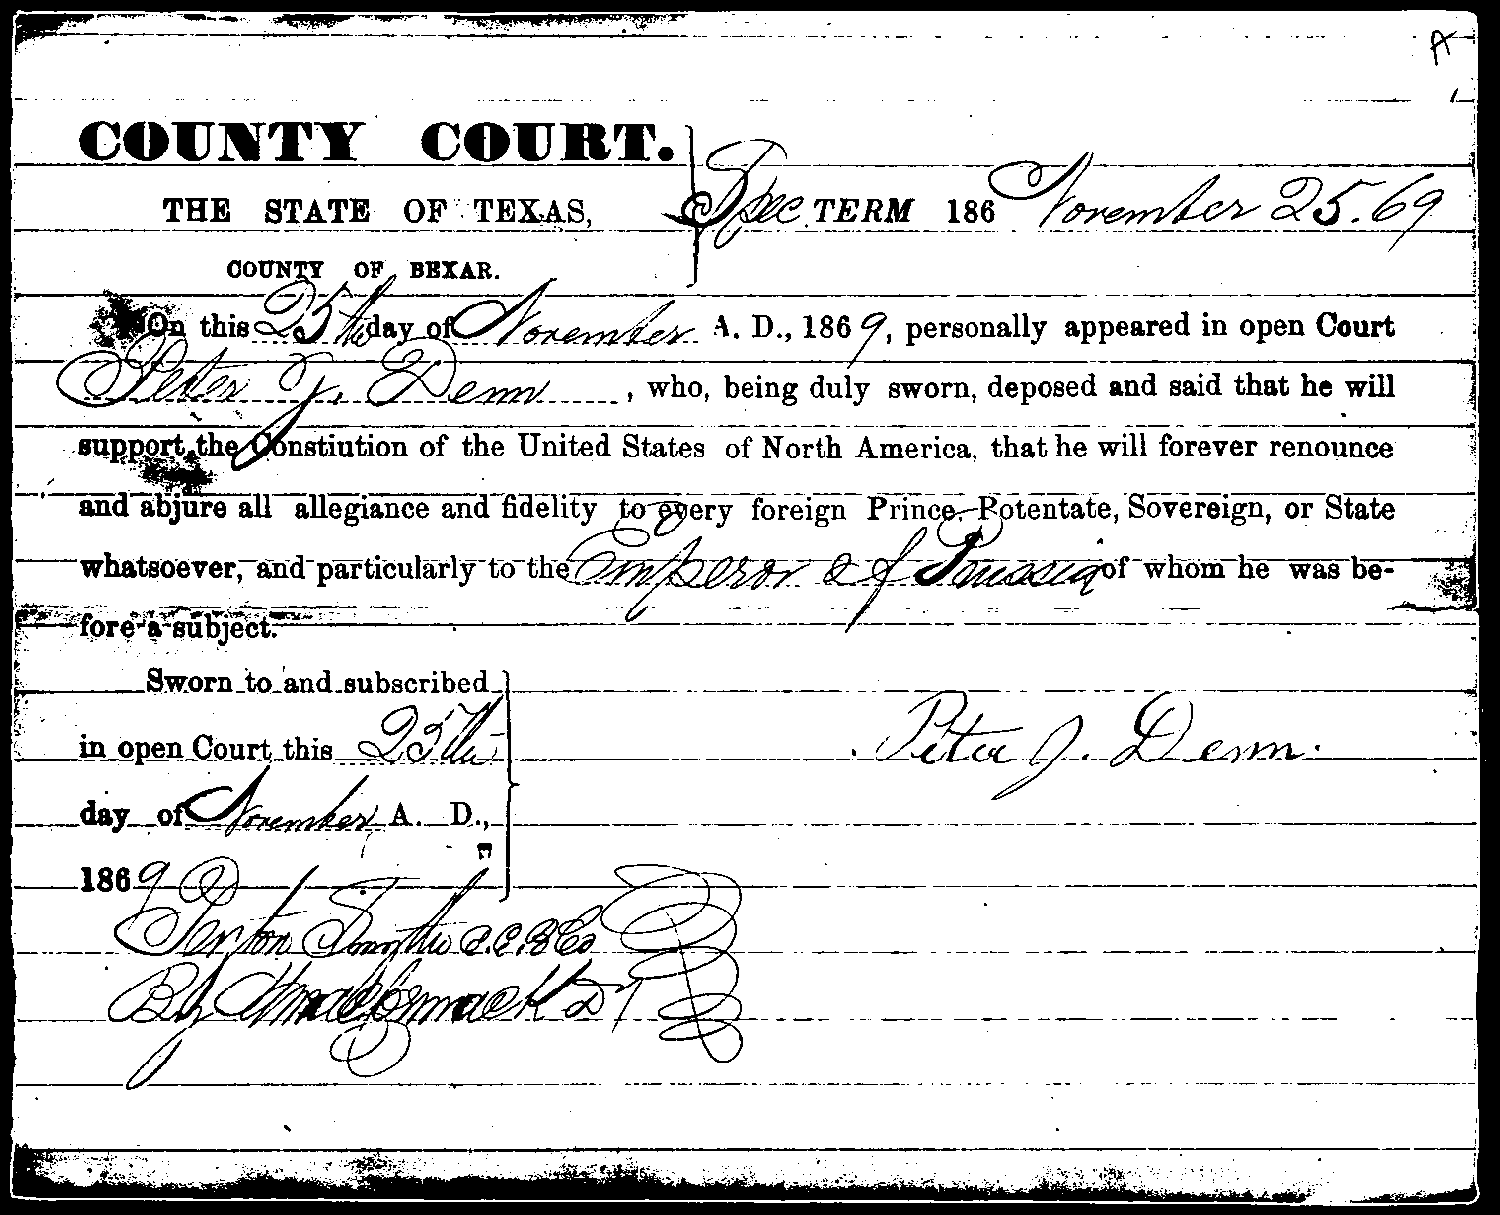 A
COUNTY COURT.
THE STATE OF TEXAS, Spec TERM 186 November 25. 69
COUNTY OF BEXAR.
On this 25th day of November A. D., 1869, personally appeared in open Court
Peter J. Denn, who, being duly sworn, deposed and said that he will
support the Constiution of the United States of North America, that he will forever renounce
and abjure all allegiance and fidelity to every foreign Prince, Potentate, Sovereign, or State
whatsoever, and particularly to the Emperor of Prussia of whom he was be-
fore a subject.
Sworn to and subscribed
in open Court this 25th
Peter J. Denn.
day of November A. D.,
1869
Smythe C.C.B.Co
By Dy